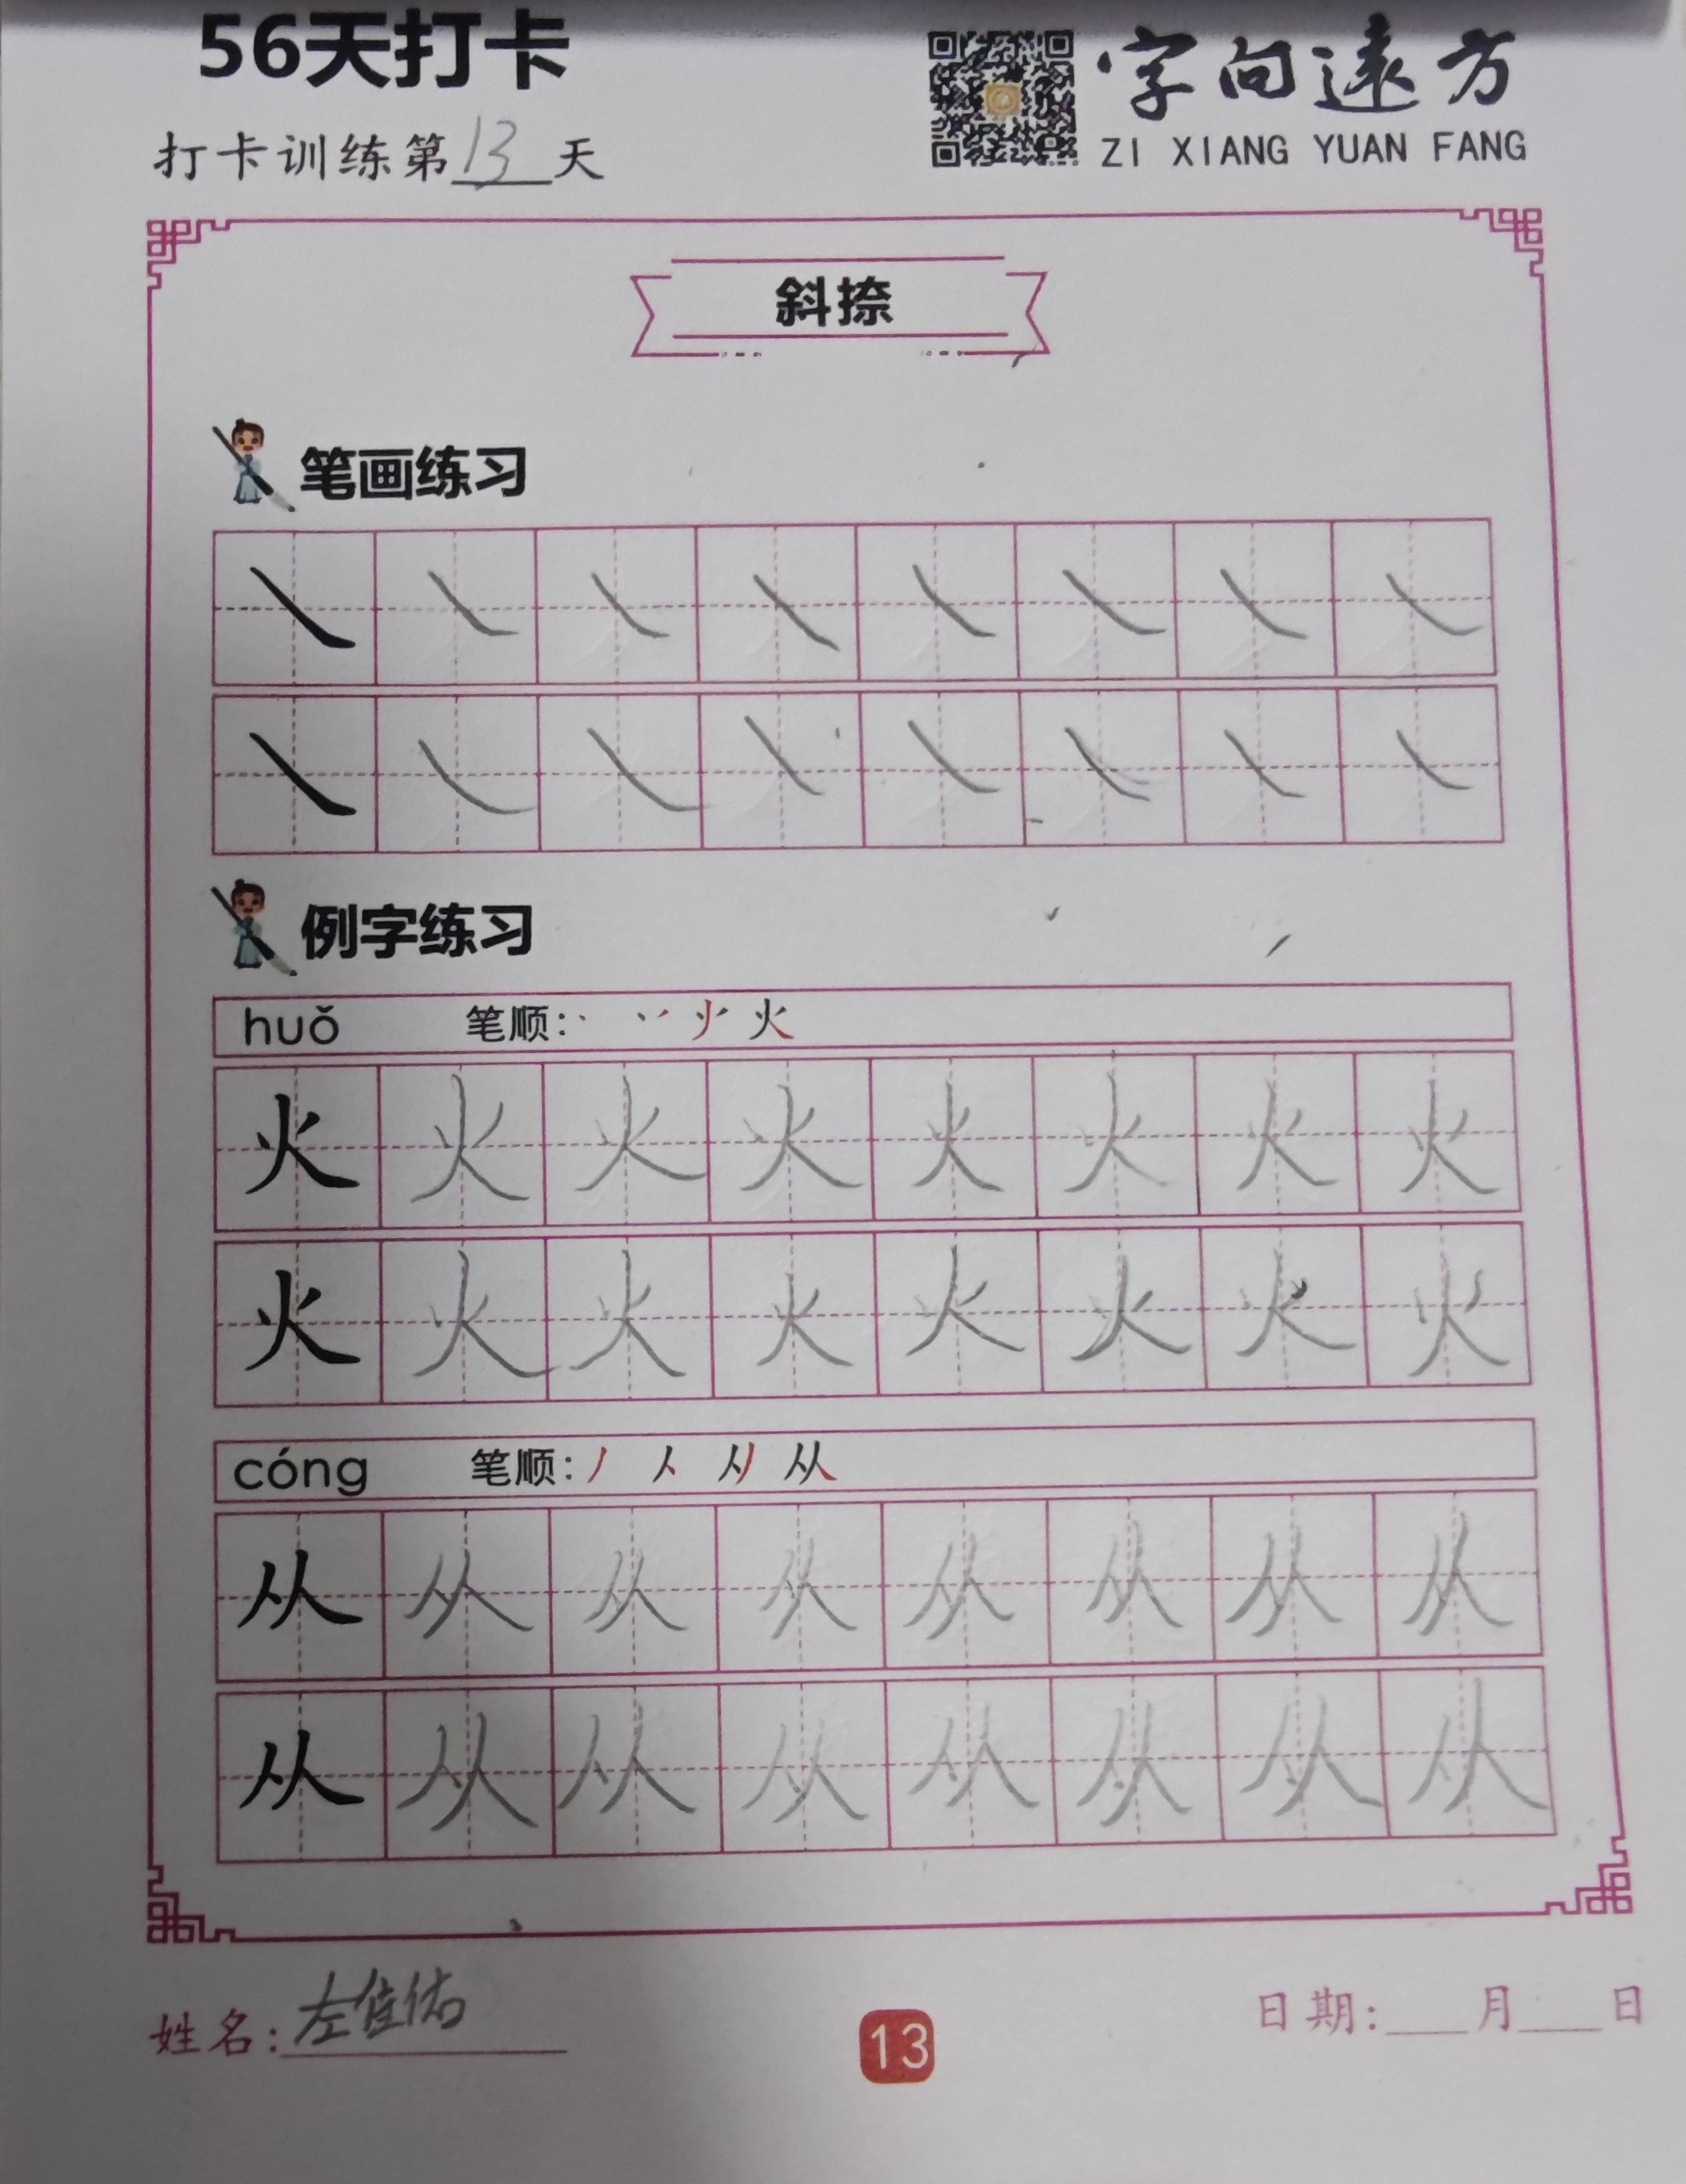 56天打卡
字向遠方
打卡训练第13天
ZI XIANG YUAN FANG
斜捺
笔画练习
㇏ ㇏ ㇏ ㇏ ㇏ ㇏ ㇏ ㇏
㇏ ㇏ ㇏ ㇏ ㇏ ㇏ ㇏ ㇏
例字练习
huǒ 笔顺: 火
火 火 火 火 火 火 火 火
火 火 火 火 火 火 火 火
cóng 笔顺: 丿 人 从
从 从 从 从 从 从 从 从
从 从 从 从 从 从 从 从
姓名: 左佳佑
13
日期:___月___日